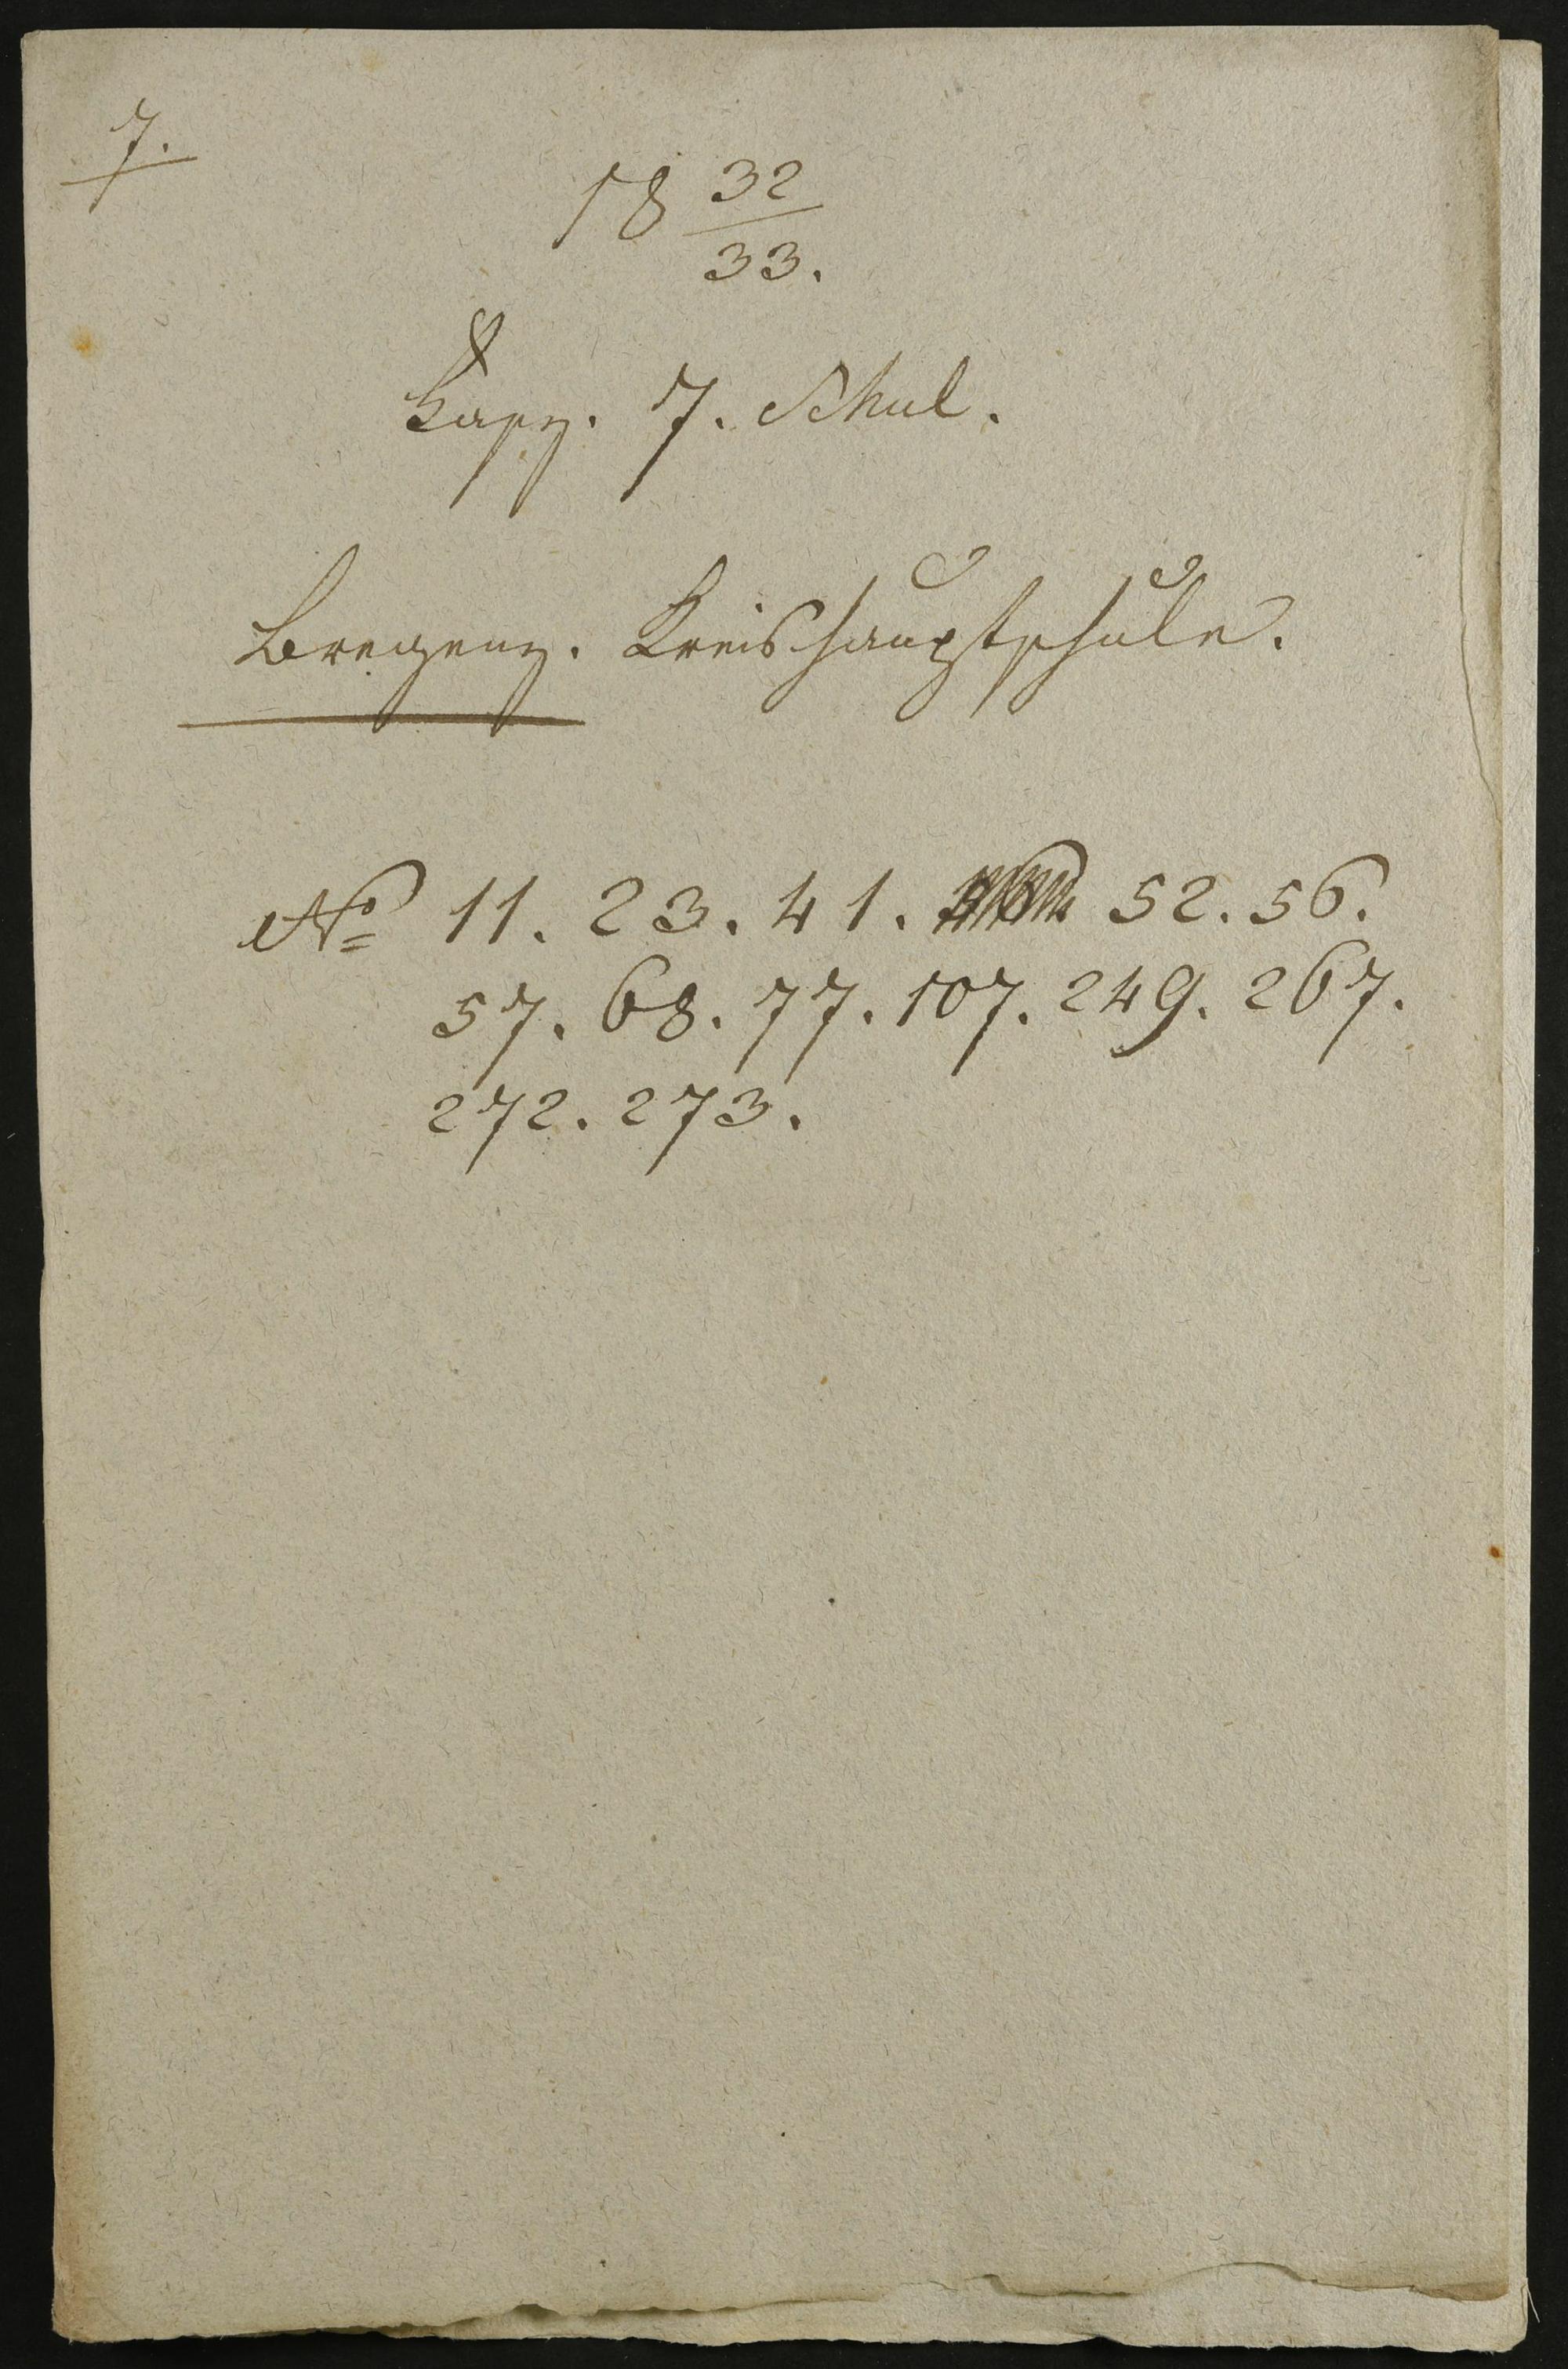 7.
18 32/33.
Fasz. 7. Schul.
Bregenz. Kreishauptschule.
No 11. 23. 41. 52. 56.
57. 68. 77. 107. 249. 267.
272. 273.